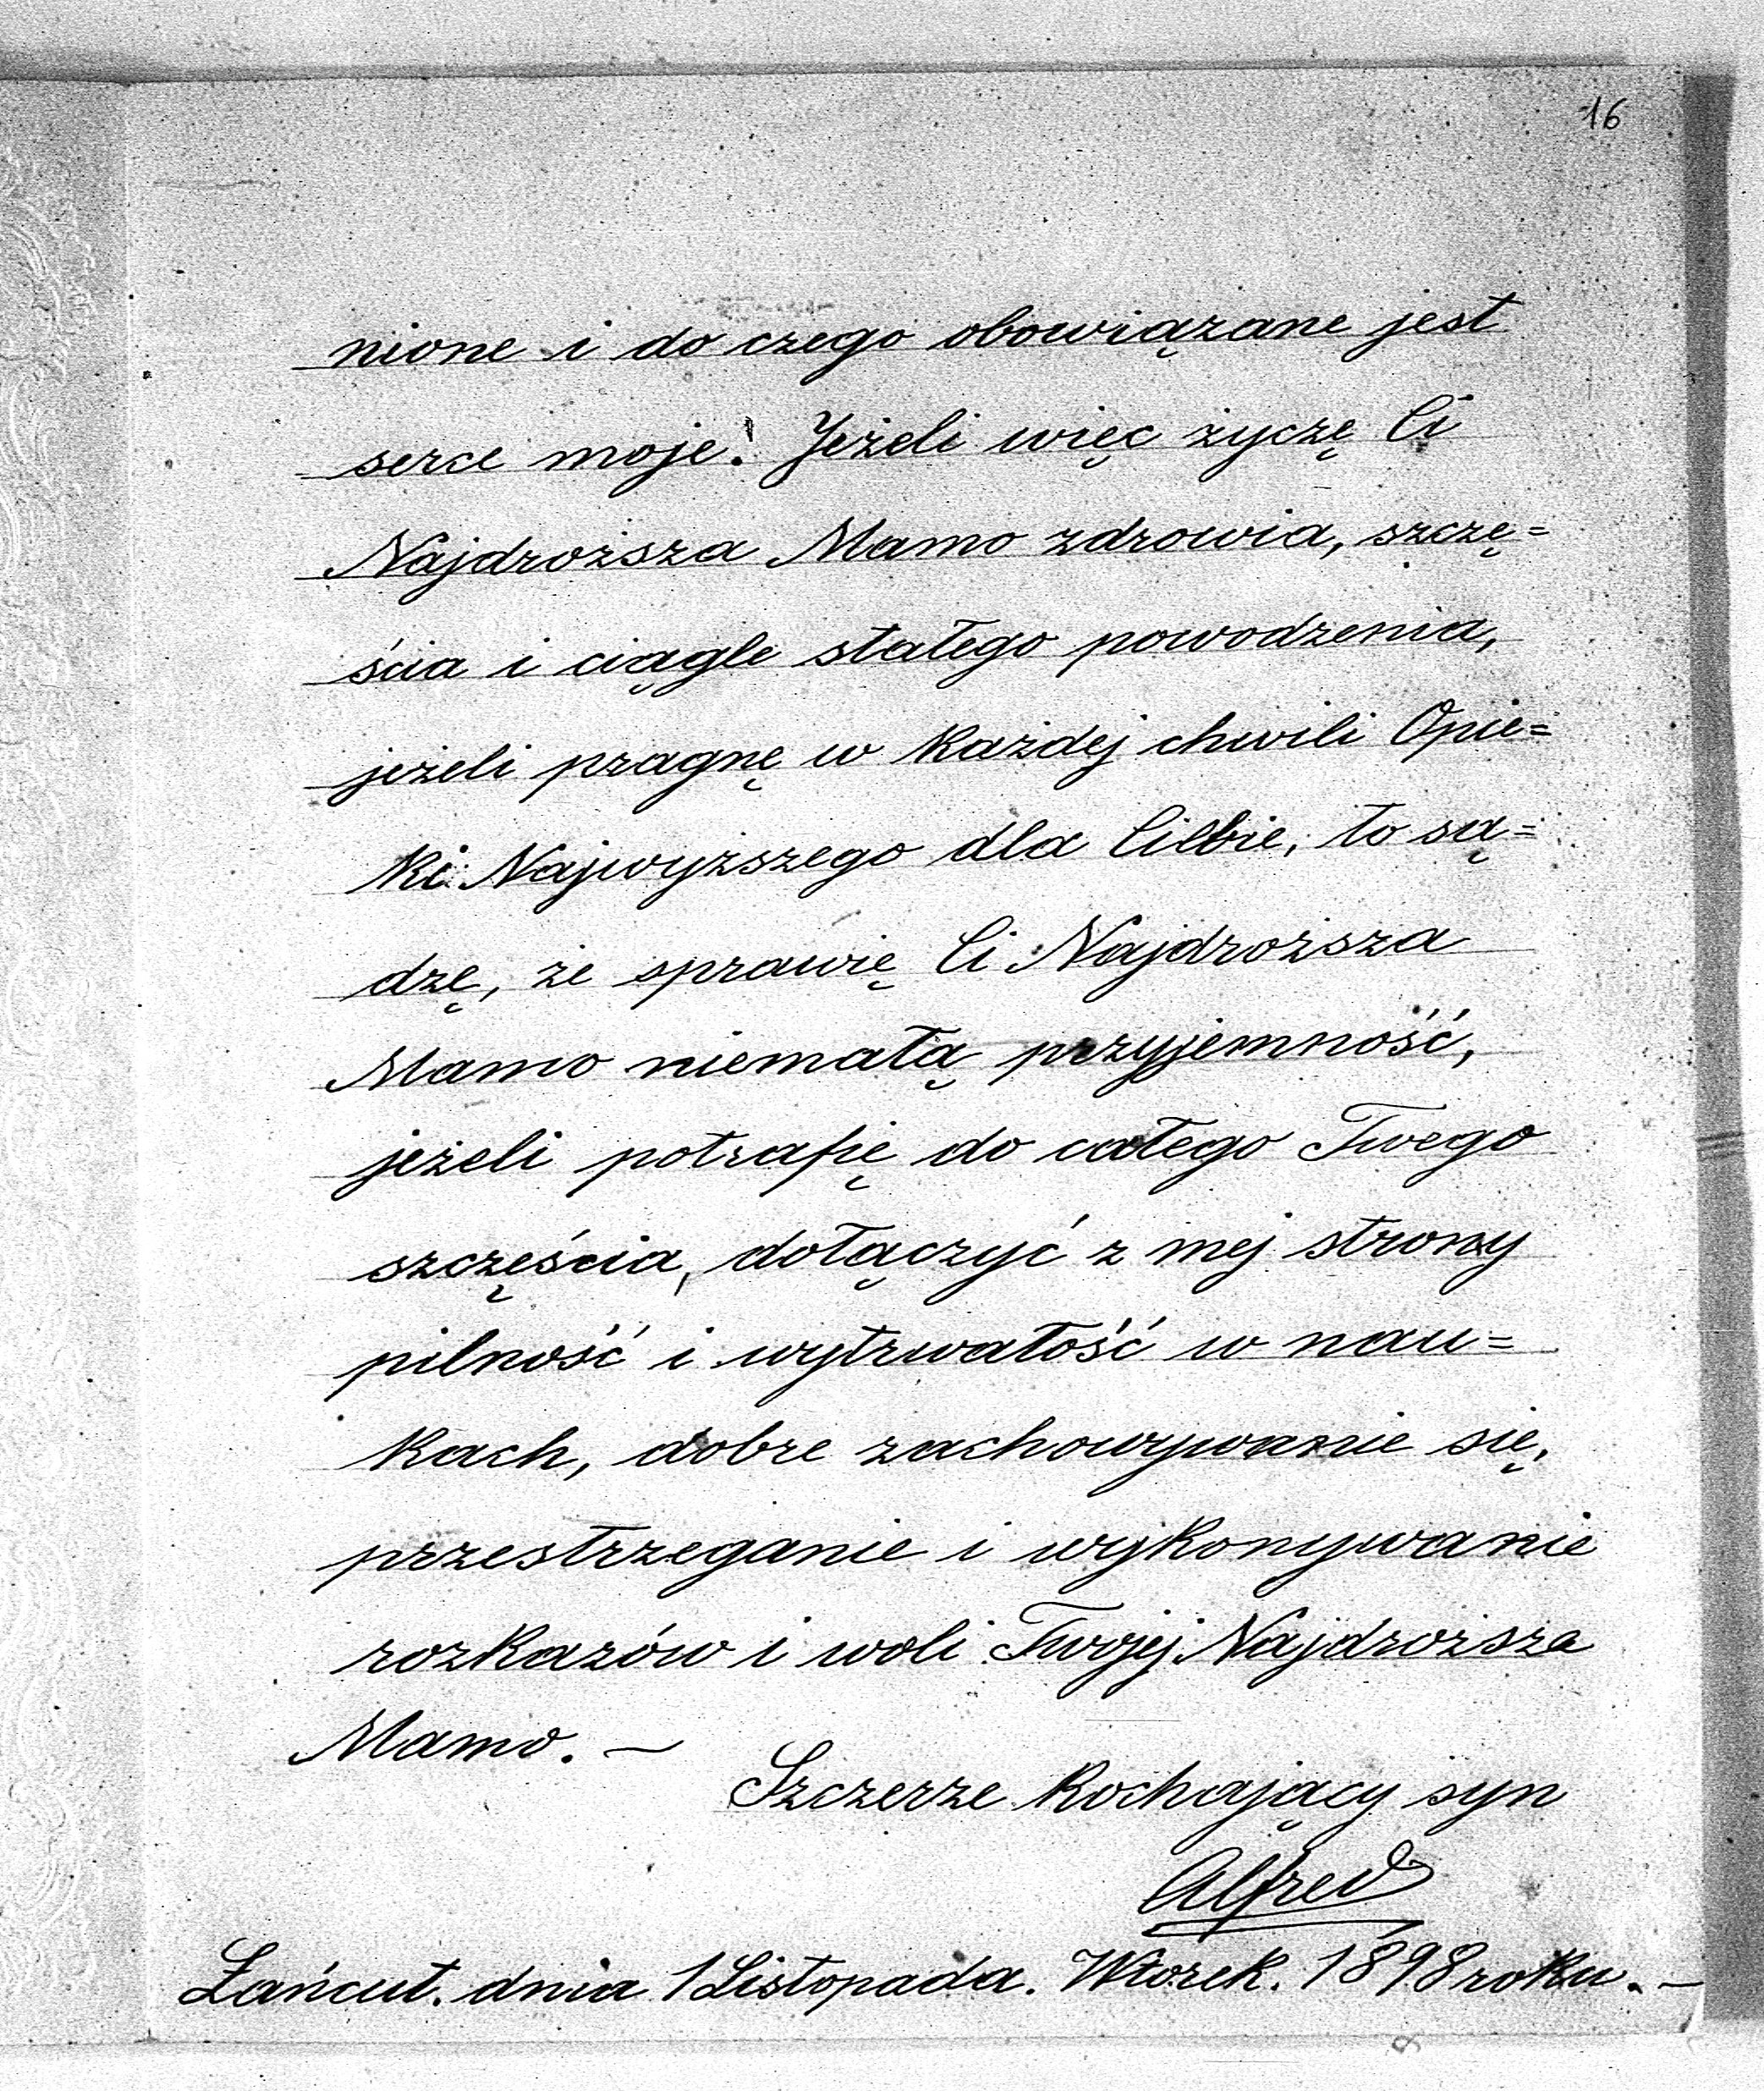 16
nione i do czego obowiązane jest
serce moje! Jeżeli więc życzę Ci
Najdroższa Mamo zdrowia, szczę=
ścia i ciągle stałego powodzenia,
jeżeli pragnę w każdej chwili Opie=
ki Najwyższego dla Ciebie, to są=
dzę, że sprawię Ci Najdroższa
Mamo niemałą przyjemność,
jeżeli potrafię do całego Twego
szczęścia, dołączyć z mej strony
pilność i wytrwałość w nau=
kach, dobre zachowywanie się,
przestrzeganie i wykonywanie
rozkazów i woli Twojej Najdroższa
Mamo. —
Szczerze kochający syn
Alfred
Łańcut. dnia 1 Listopada. Wtorek. 1898 roku. —